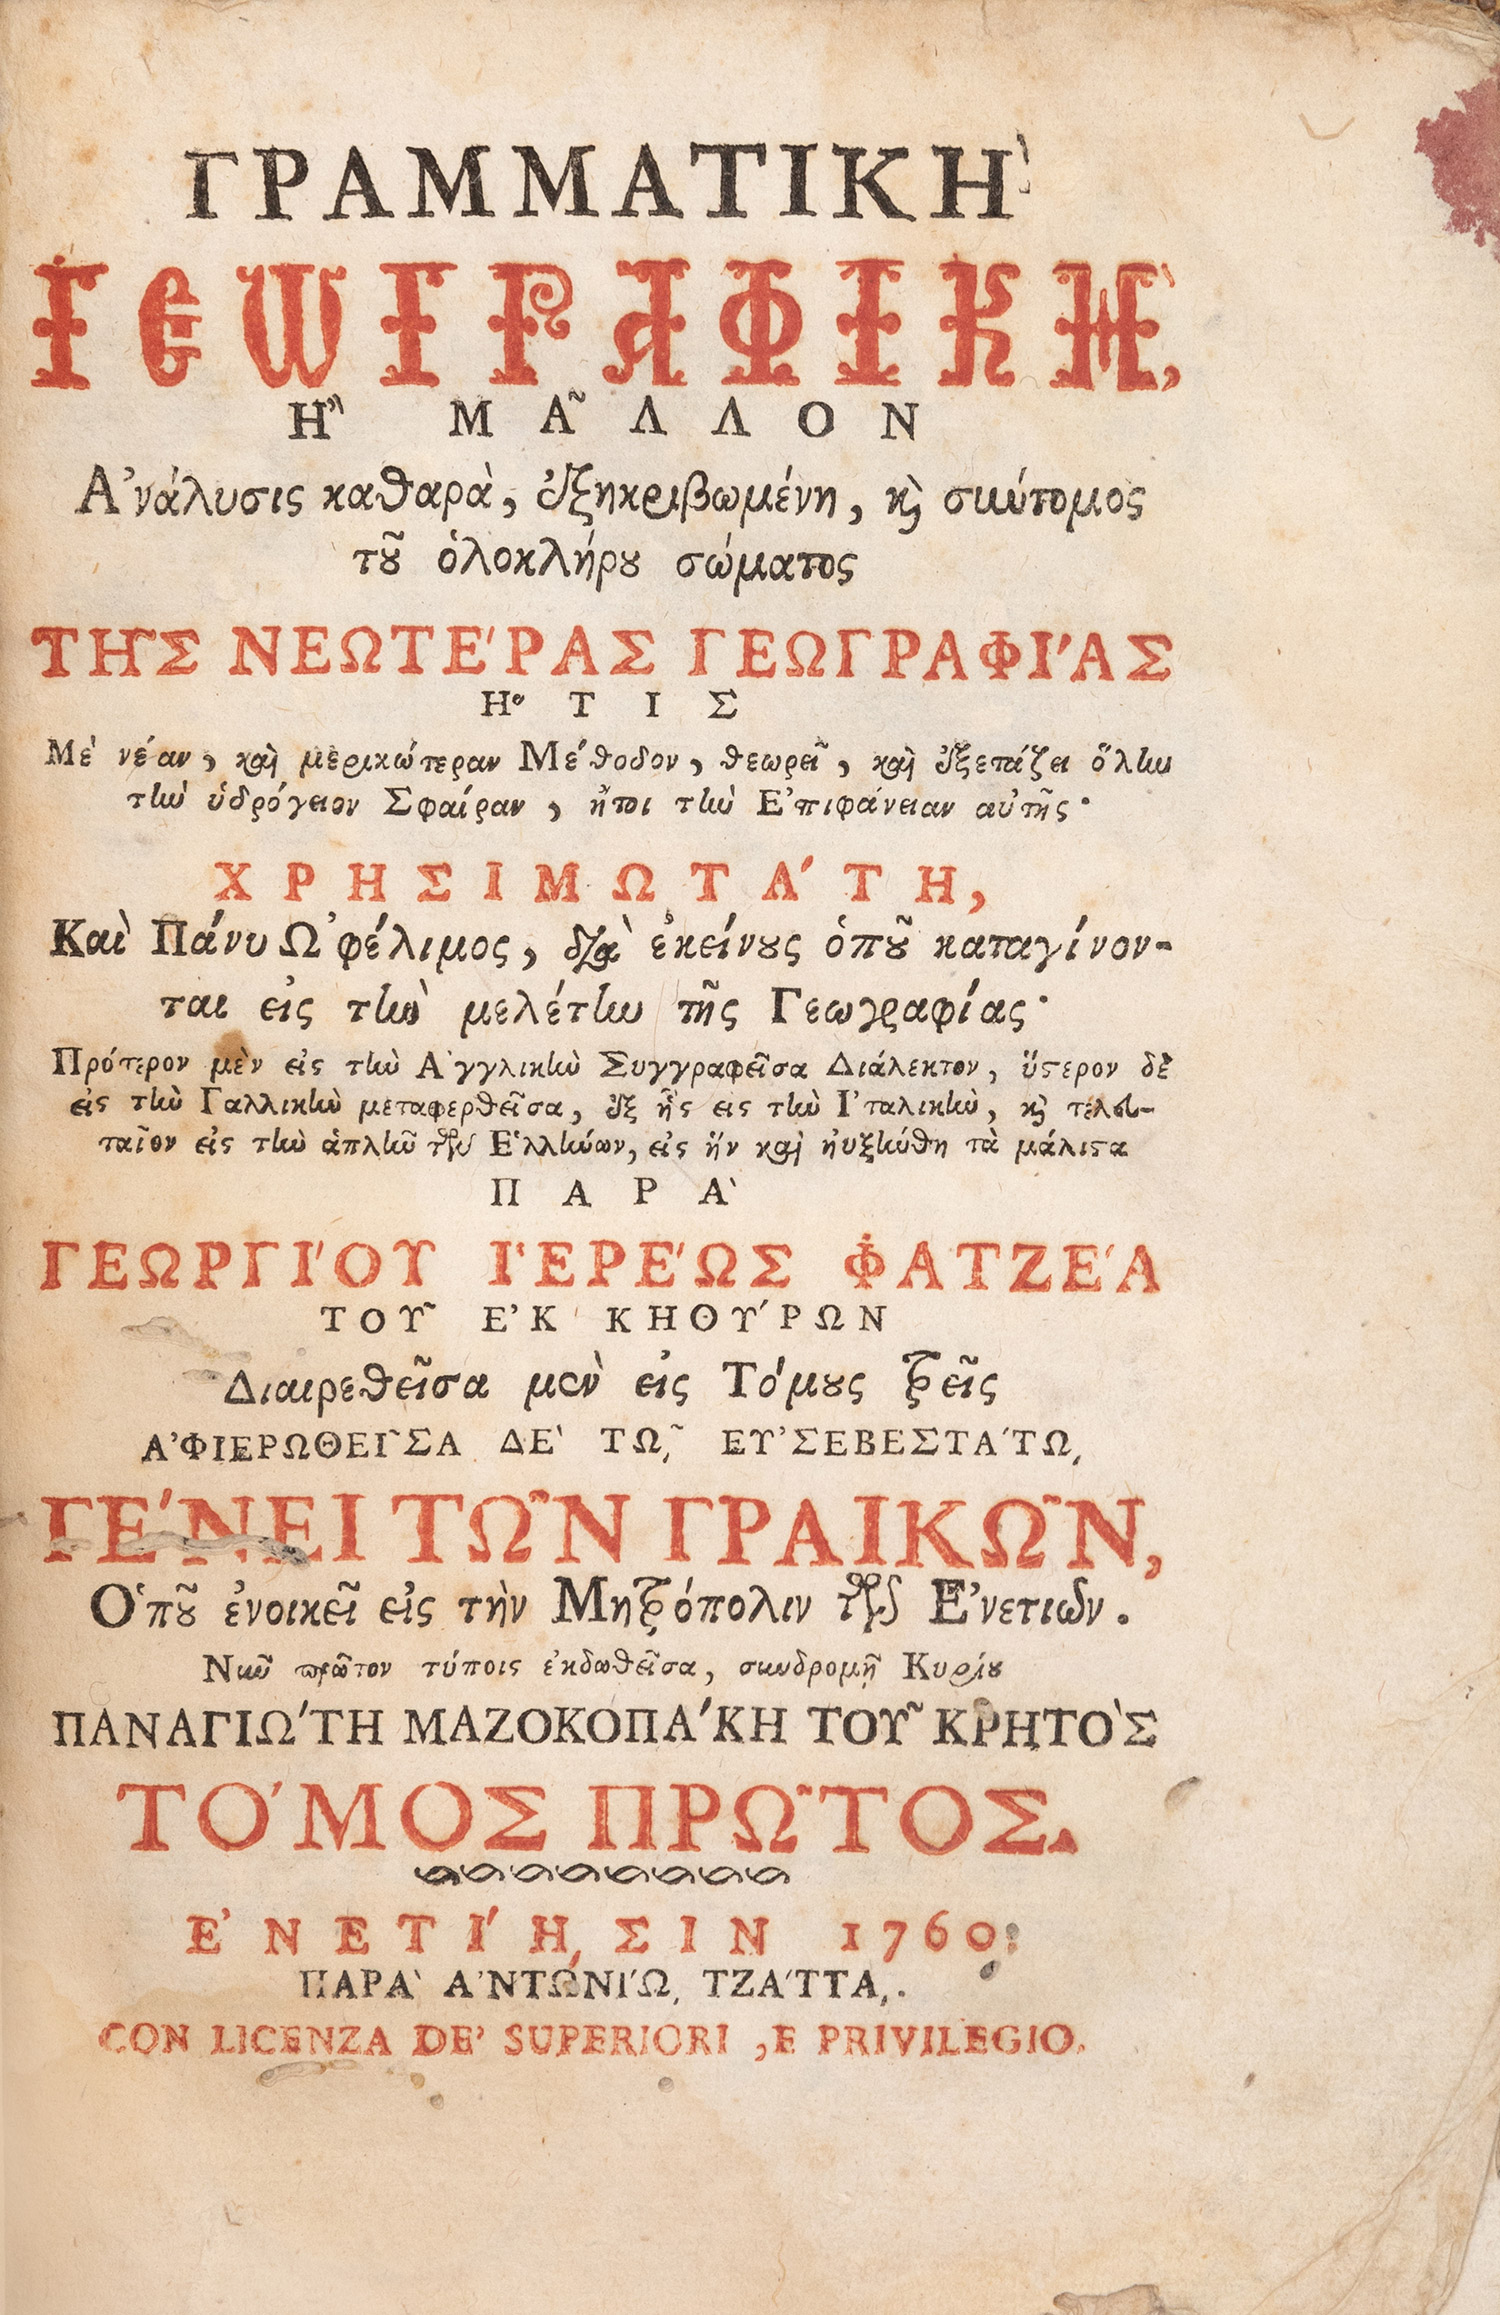 ΓΡΑΜΜΑΤΙΚΗ`
ΓΕΩΓΡΑΦΙΚΗ`,
Η῍ ΜΑ῀ΛΛΟΝ
Α᾿νάλυσις καθαρὰ, ἐξηκριβωμένη, κὶ σιώτομος
τȣ῀ ὁλοκλήρȣ σώματος
ΤΗ῀Σ ΝΕΩΤΕ΄ΡΑΣ ΓΕΩΓΡΑΦΙ΄ΑΣ
Η῞ΤΙΣ
Μὲ νέαν, καὶ μερικώτεραν Μέθοδον, θεωρεῖ, καὶ ἐξετάζει ὅλην
τὴν ὑδρόγειον Σφαίραν, ἤτοι τὴν Ε᾿πιφάνειαν αὐτῆς·
ΧΡΗΣΙΜΩΤΑ΄ΤΗ,
Καὶ Πάνυ Ω᾿φέλιμος, διὰ ἐκείνȣς ὁπȣ῀ καταγίνον-
ται εἰς τὴν μελέτην τῆς Γεωγραφίας·
Πρότερον μὲν εἰς τὴν Α᾿γγλικὴν Συγγραφεῖσα Διάλεκτον, ὕϛερον δὲ
εἰς τὴν Γαλλικὴν μεταφερθεῖσα, ἐξ ἧς εις τὴν Ι᾿ταλικὴν, κὶ τελευ-
ταῖον εἰς τὴν ἁπλῆν τῶν Ε῾λλήνων, εἰς ἥν καὶ ηὐξήνθη τὰ μάλιϛα
ΠΑΡΑ`
ΓΕΩΡΓΙ΄ΟΥ Ι῾ΕΡΕ΄ΩΣ ΦΑΤΖΕ΄Α
ΤΟΥ῀ Ε᾿Κ ΚΗΘΥ΄ΡΩΝ
Διαιρεθεῖσα μὲν εἰς Τόμȣς τρεῖς
Α᾿ΦΙΕΡΩΘΕΙ῀ΣΑ ΔΕ` Τῼ῀ ΕΥ᾿ΣΕΒΕΣΤΑ΄Τῼ
ΓΕ΄ΝΕΙ ΤΩ῀Ν ΓΡΑΙΚΩ῀Ν,
Ο῾πȣ῀ ἐνοικεῖ εἰς τὴν Μητρόπολιν τῶν Ε᾿νετιῶν.
Νῦν πρῶτον τύποις ἐκδοθεῖσα, συνδρομῇ Κυρίȣ
ΠΑΝΑΓΙΩ΄ΤΗ ΜΑΖΟΚΟΠΑ΄ΚΗ ΤΟΥ῀ ΚΡΗΤΟ`Σ
ΤΟ΄ΜΟΣ ΠΡΩ῀ΤΟΣ.
Ε᾿ΝΕΤΙ΄ῌΣΙΝ 1760:
ΠΑΡΑ` Α᾿ΝΤΩΝΙ΄ῼ ΤΖΑ΄ΤΤᾼ.
CON LICENZA DE' SUPERIORI, E PRIVILEGIO.